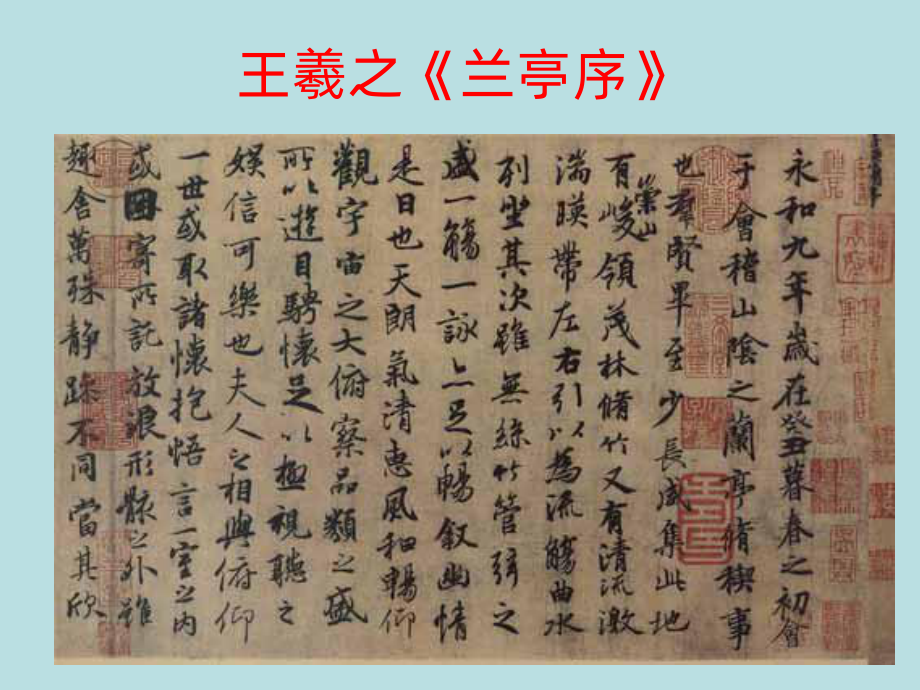 王羲之《兰亭序》
永和九年歲在癸丑暮春之初會
于會稽山陰之蘭亭脩稧事
也羣賢畢至少長咸集此地
有崇山峻領茂林脩竹又有清流激
湍暎帶左右引以為流觴曲水
列坐其次雖無絲竹管弦之
盛一觴一詠亦足以暢叙幽情
是日也天朗氣清惠風和暢仰
觀宇宙之大俯察品類之盛
所以遊目騁懷足以極視聽之
娛信可樂也夫人之相與俯仰
一世或取諸懷抱悟言一室之内
或因寄所託放浪形骸之外雖
趣舍萬殊静躁不同當其欣